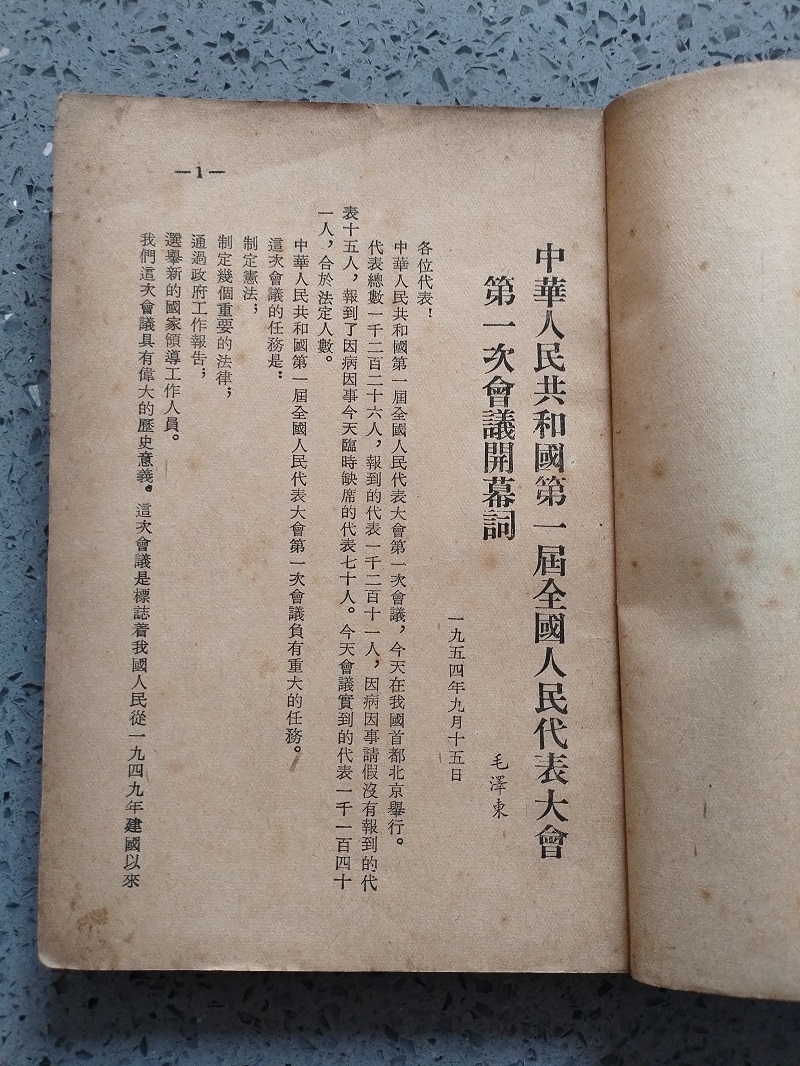 中華人民共和國第一屆全國人民代表大會
第一次會議開幕詞
毛澤東
一九五四年九月十五日
各位代表！
中華人民共和國第一屆全國人民代表大會第一次會議，今天在我國首都北京舉行。
代表總數一千二百二十六人，報到的代表一千二百十一人，因病因事請假沒有報到的代
表十五人，報到了因病因事今天臨時缺席的代表七十人。今天會議實到的代表一千一百四十
一人，合於法定人數。
中華人民共和國第一屆全國人民代表大會第一次會議負有重大的任務。
這次會議的任務是：
制定憲法；
制定幾個重要的法律；
通過政府工作報告；
選舉新的國家領導工作人員。
我們這次會議具有偉大的歷史意義。這次會議是標誌着我國人民從一九四九年建國以來
—1—